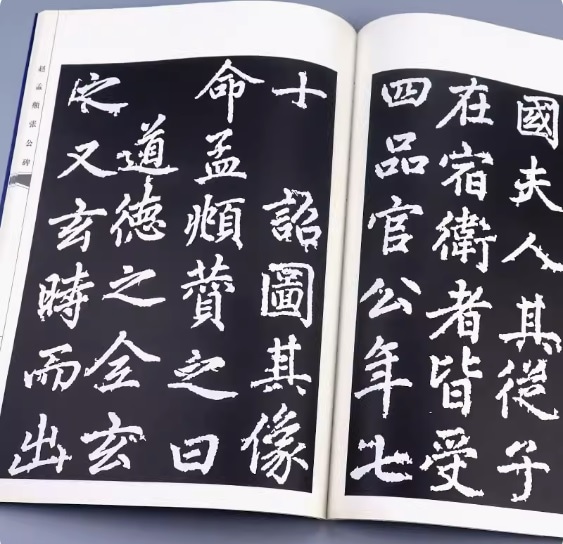 國夫人其從子
在宿衛者皆受
四品官公年七
十 詔圖其像
命孟頫贊之曰
道德之全玄
之又玄時而出
赵孟頫张公碑